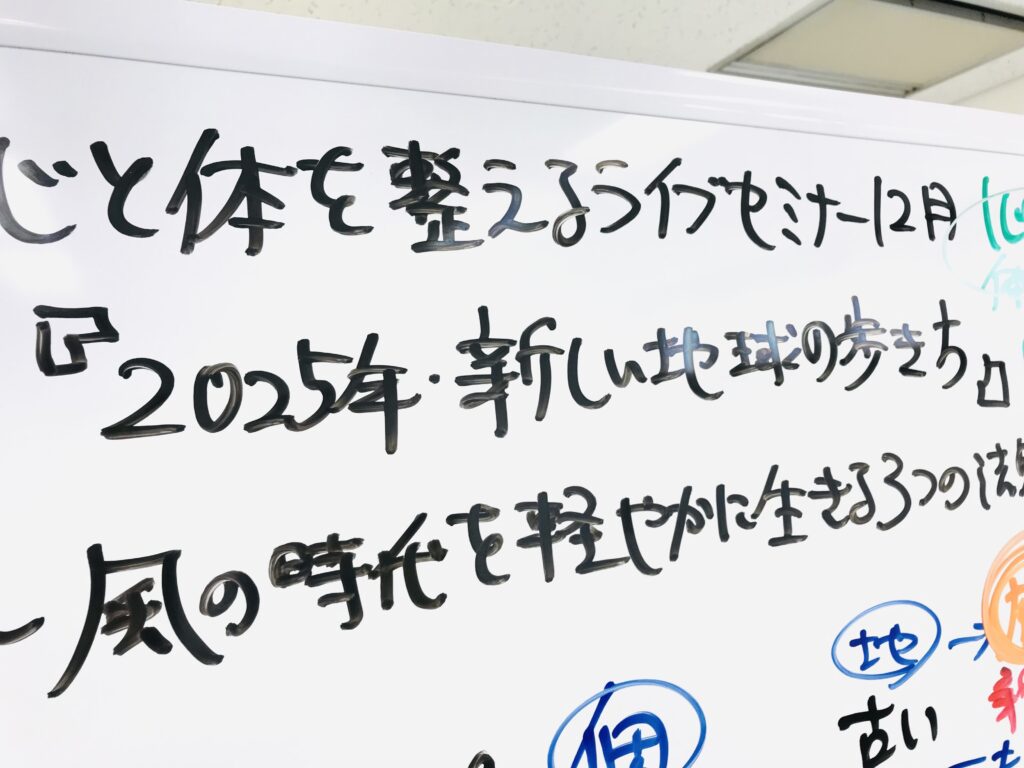 と体を整えるライブセミナー12月
『2025年・新しい地球の歩き方』
～風の時代を軽やかに生きる3つの法
地→
古い
個